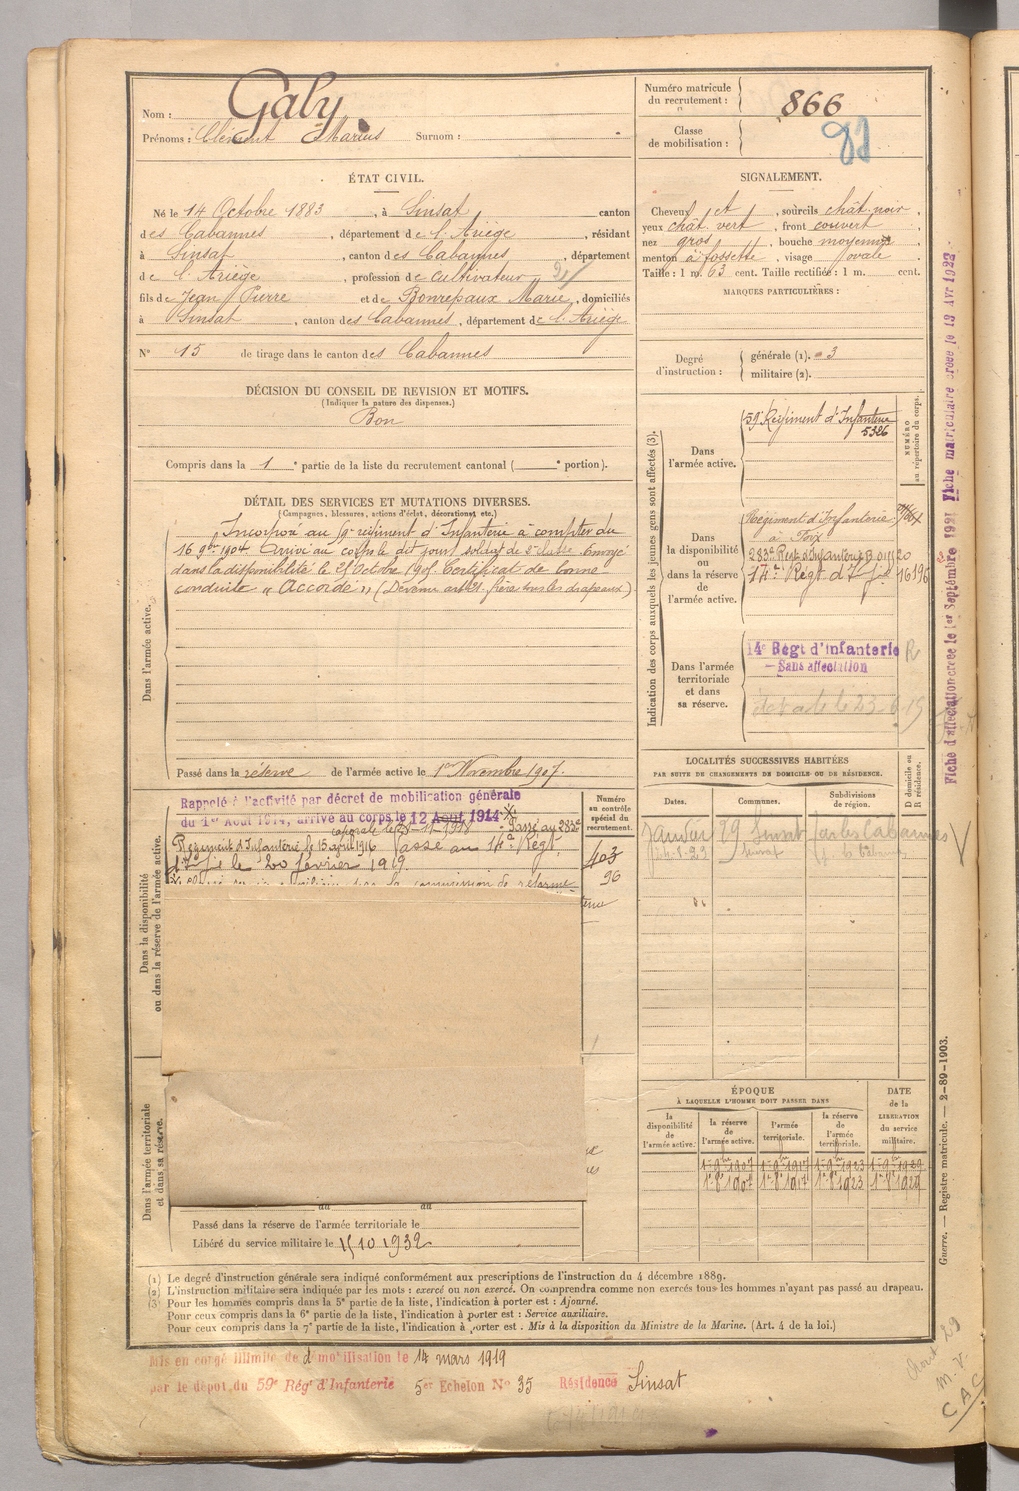 Nom : Gaby
Prénoms : Clément Marius Surnom :
ÉTAT CIVIL.
Né le 14 Octobre 1883, à Sinsat canton
des Cabannes, département de l'Ariège, résidant
à Sinsat, canton des Cabannes, département
de l'Ariège, profession de cultivateur
fils de Jean Pierre et de Bonrepaux Marie, domiciliés
à Sinsat, canton des Cabannes, département de l'Ariège
N° 15 de tirage dans le canton des Cabannes
DÉCISION DU CONSEIL DE REVISION ET MOTIFS.
(Indiquer la nature des dispenses.)
Bon
Compris dans la 1 e partie de la liste du recrutement cantonal ( e portion).
DÉTAIL DES SERVICES ET MUTATIONS DIVERSES.
(Campagnes, blessures, actions d'éclat, décorations, etc.)
Dans l'armée active.
Incorporé au régiment d'Infanterie à compter du
16 9bre 1904. Arrivé au corps le dit jour, soldat de 2e classe. Envoyé
dans la disponibilité le Octobre 190 Certificat de bonne
conduite "Accordé"
Passé dans la réserve de l'armée active le 1er Novembre 1907.
Dans la disponibilité
ou dans la réserve de l'armée active.
Rappelé à l'activité par décret de mobilisation générale
du 1er Août 1914, arrivé au corps le 12 Août 1914
caporal le 1918 Passé au 283e
Régiment d'Infanterie le 13 avril 1916 Passé au 14e Régt
d'Infie le 20 février 1919
la commission de réforme
Numéro
au contrôle
spécial du
recrutement.
403
96
Dans l'armée territoriale
et dans sa réserve.
Passé dans la réserve de l'armée territoriale le
Libéré du service militaire le 15 10 1932
Numéro matricule
du recrutement : 866
Classe
de mobilisation :
SIGNALEMENT.
Cheveux et, sourcils chât. noir,
yeux chât. vert, front couvert,
nez gros, bouche moyenne,
menton à fossette, visage ovale,
Taille : 1 m. 63 cent. Taille rectifiée : 1 m. cent.
MARQUES PARTICULIÈRES :
Degré
d'instruction :
générale (1). 3
militaire (2).
Indication des corps auxquels les jeunes gens sont affectés (3).
NUMÉRO
au répertoire du corps.
Dans
l'armée active.
59e Régiment d'Infanterie
5326
Dans
la disponibilité
ou
dans la réserve
de
l'armée active.
Régiment d'Infanterie
à Foix
283e Régt d'Infanterie
14e Régt d'Infie 16196
Dans l'armée
territoriale
et dans
sa réserve.
14e Régt d'Infanterie
— Sans affectation
LOCALITÉS SUCCESSIVES HABITÉES
PAR SUITE DE CHANGEMENTS DE DOMICILE OU DE RÉSIDENCE.
Dates. Communes. Subdivisions
de région.
D domicile ou
R résidence.
Janvier 29 Sinsat les Cabannes
ÉPOQUE
À LAQUELLE L'HOMME DOIT PASSER DANS
la
disponibilité
de
l'armée active.
la réserve
de
l'armée active.
l'armée
territoriale.
la réserve
de
l'armée
territoriale.
DATE
de la
LIBÉRATION
du service
militaire.
1er 9bre 1907 1er 9bre 1917 1er 9bre 1923 1er 9bre 1929
1er 8e 1907 1er 8e 1917 1er 8e 1923 1er 8e 1929
(1) Le degré d'instruction générale sera indiqué conformément aux prescriptions de l'instruction du 4 décembre 1889.
(2) L'instruction militaire sera indiquée par les mots : exercé ou non exercé. On comprendra comme non exercés tous les hommes n'ayant pas passé au drapeau.
(3) Pour les hommes compris dans la 5e partie de la liste, l'indication à porter est : Ajourné.
Pour ceux compris dans la 6e partie de la liste, l'indication à porter est : Service auxiliaire.
Pour ceux compris dans la 7e partie de la liste, l'indication à porter est : Mis à la disposition du Ministre de la Marine. (Art. 4 de la loi.)
Mis en congé illimité de démobilisation le 14 mars 1919
par le dépôt du 59e Régt d'Infanterie 5er Echelon N° 35 Résidence Sinsat
Fiche d'affectation créée le 1er Septembre 1921 Fiche matriculaire créée le 13 Avr 1922
Guerre. — Registre matricule. — 2-89-1903.
M. V.
CAC